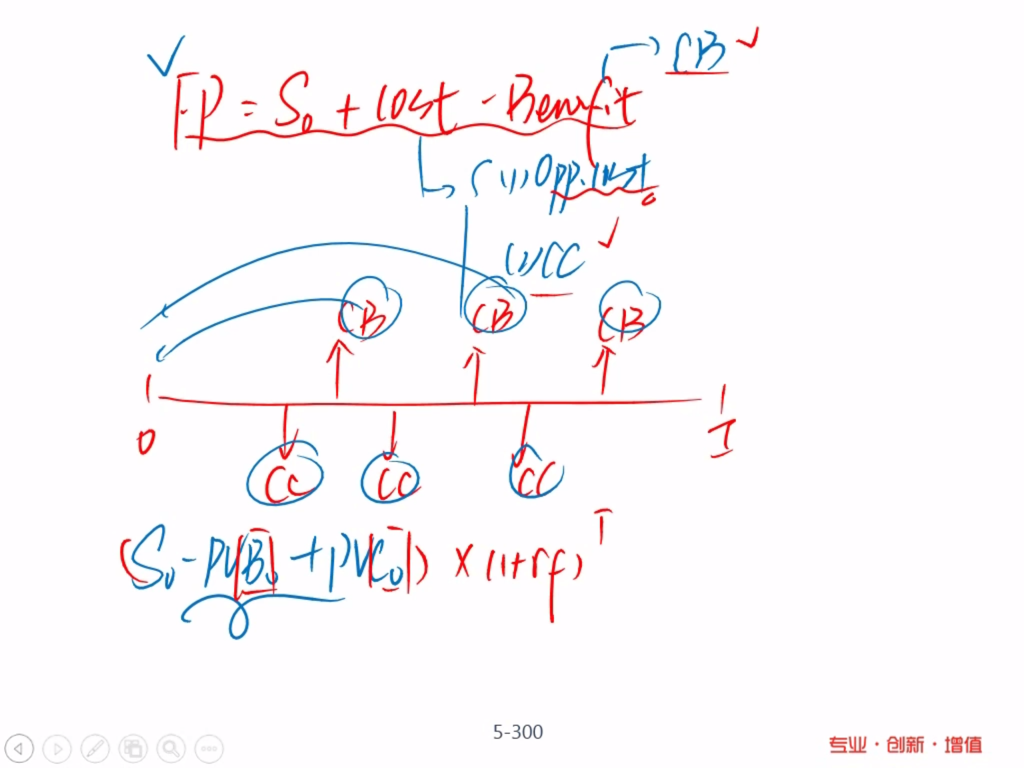 CB
FP = S₀ + Cost - Benefit
(1) Opp. Cost
(2) CC
CB CB CB
0 T
CC CC CC
(S₀ - PVB₀ + PVC₀) × (1+rf)ᵀ
5-300
专业·创新·增值